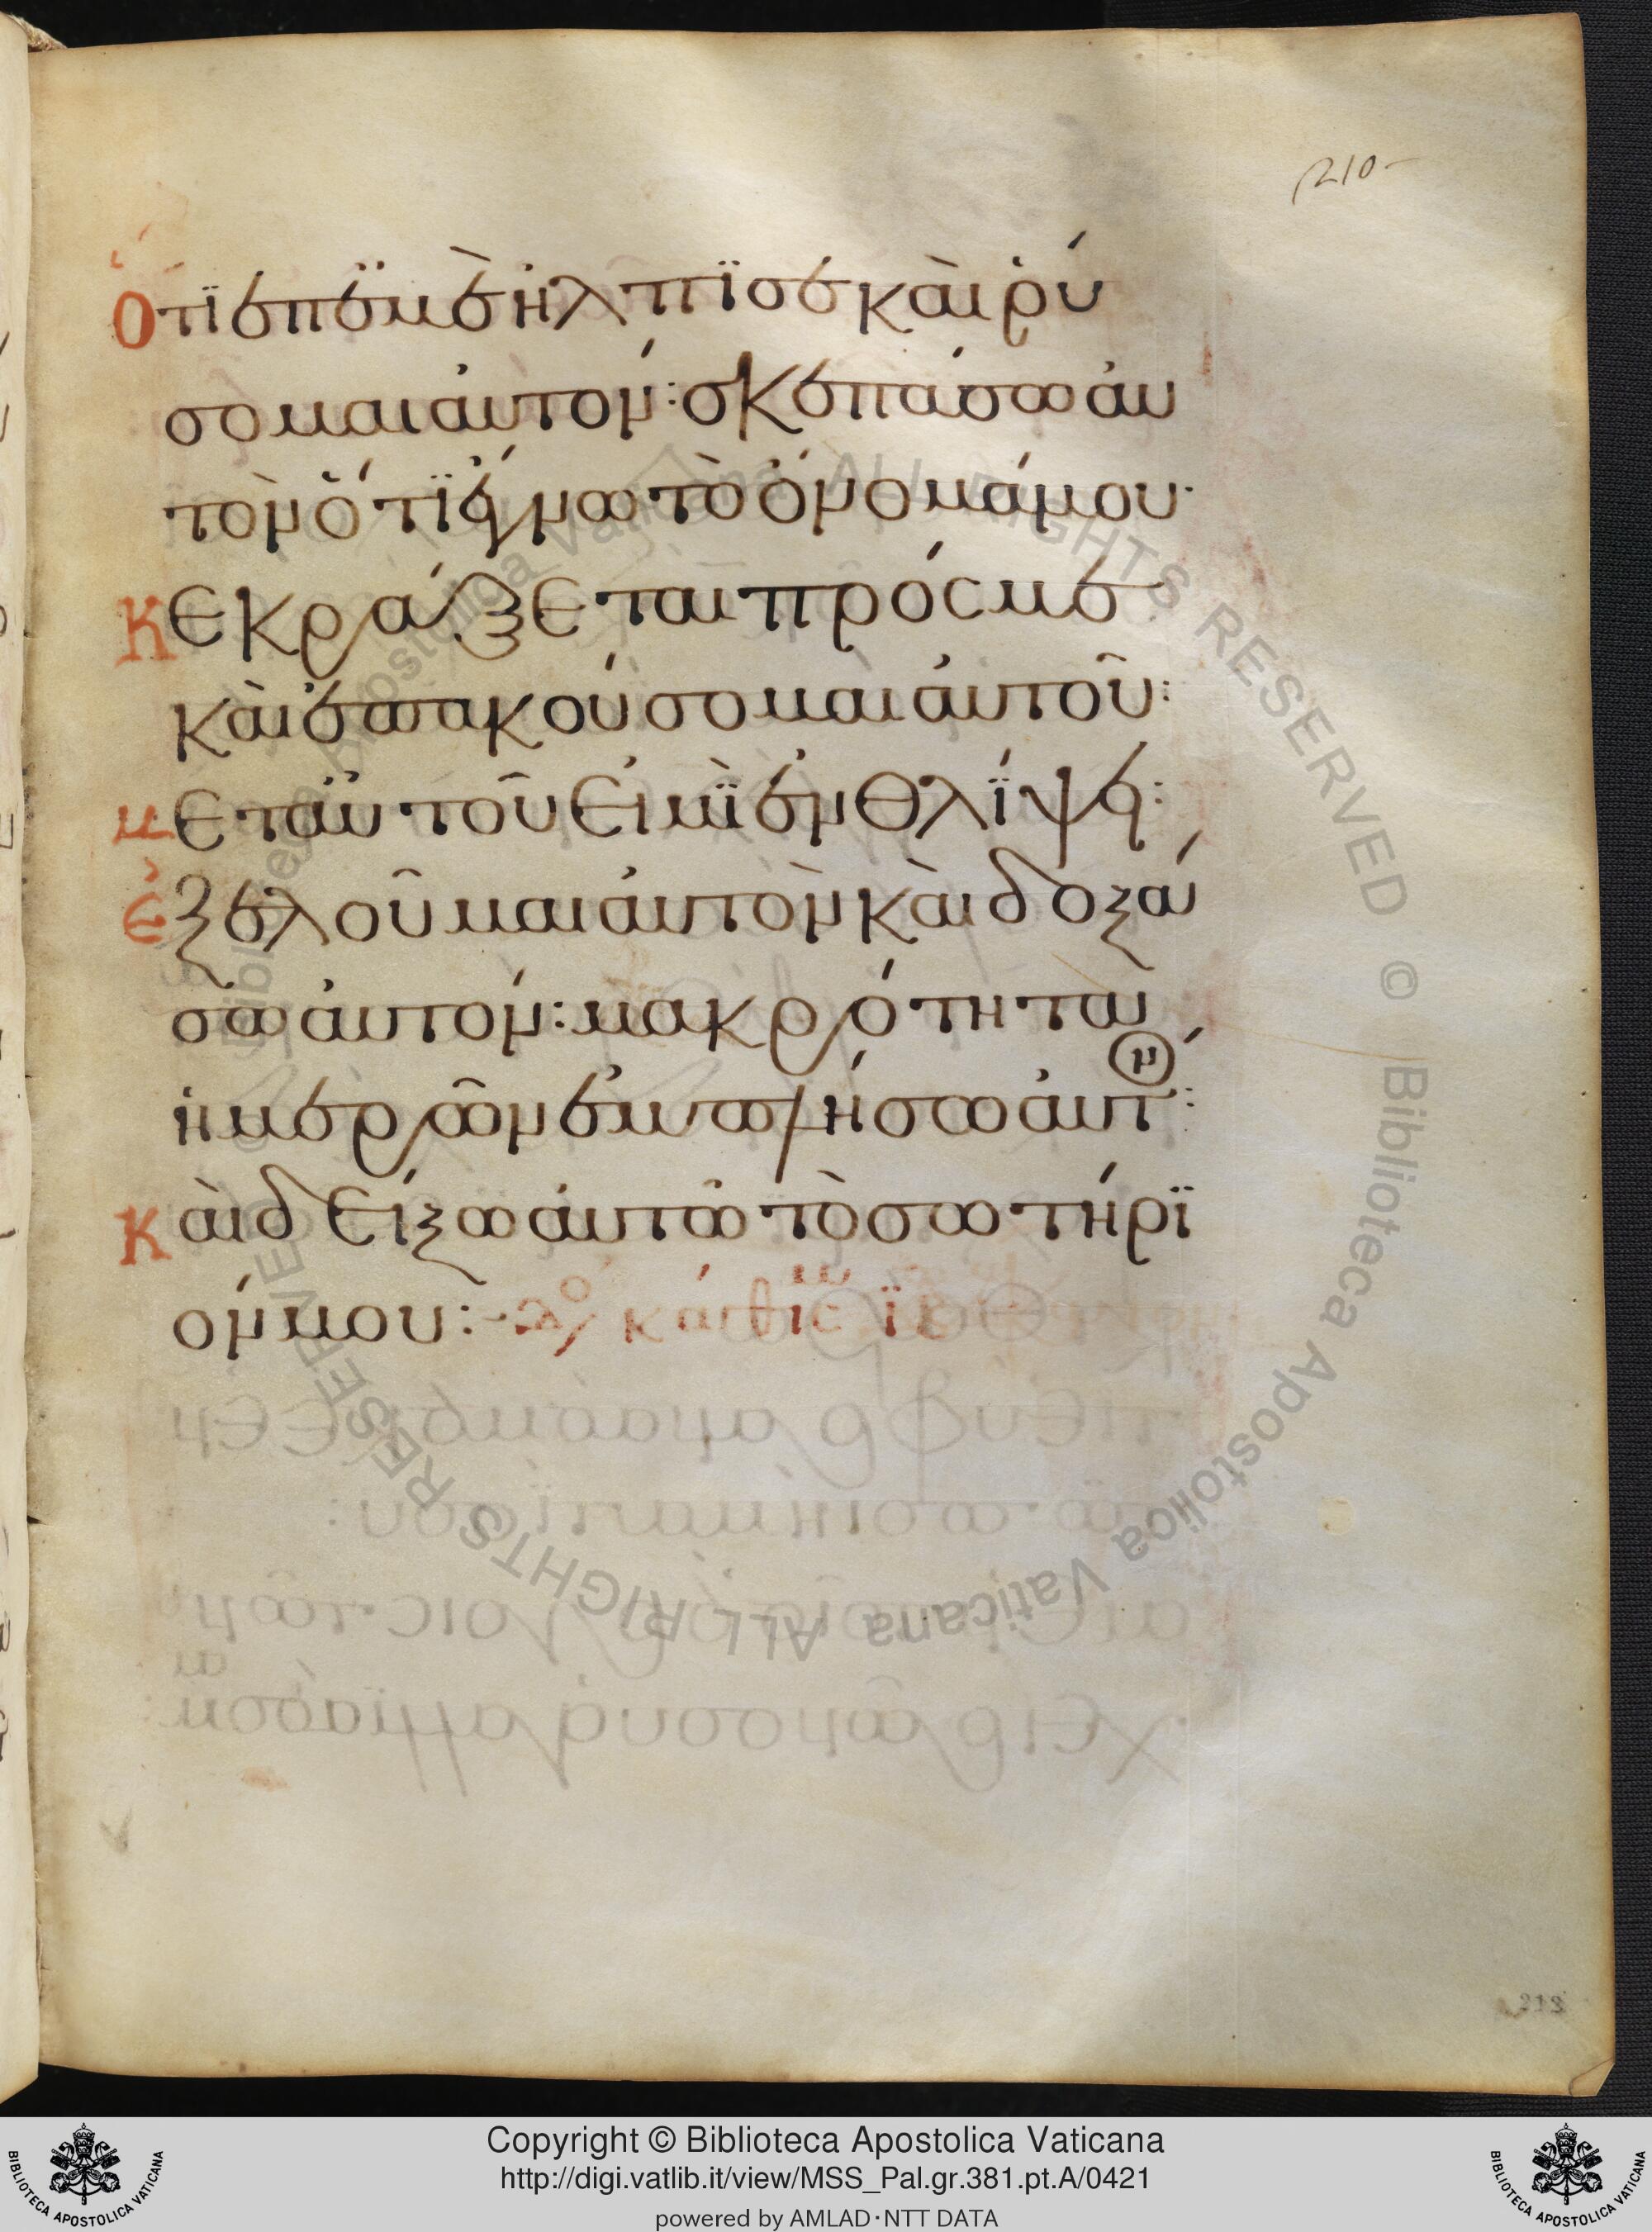 210
Ὅτι ἐπ' ἐμὲ ἤλπισε καὶ ῥύ
σομαι αὐτόν: σκεπάσω αὐ
τὸν ὅτι ἔγνω τὸ ὄνομά μου.
Κεκράξεται πρός με
καὶ ἐπακούσομαι αὐτοῦ:
μετ' αὐτοῦ εἰμὶ ἐν θλίψει:
ἐξελοῦμαι αὐτὸν καὶ δοξά
σω αὐτόν: μακρότητα
ἡμερῶν ἐμπλήσω αὐτ(ν):
Καὶ δείξω αὐτῶ τὸ σωτήρι
όν μου:
218
Biblioteca Apostolica Vaticana ALL RIGHTS RESERVED ©
Copyright © Biblioteca Apostolica Vaticana
http://digi.vatlib.it/view/MSS_Pal.gr.381.pt.A/0421
powered by AMLAD·NTT DATA
BIBLIOTECA APOSTOLICA VATICANA
BIBLIOTECA APOSTOLICA VATICANA